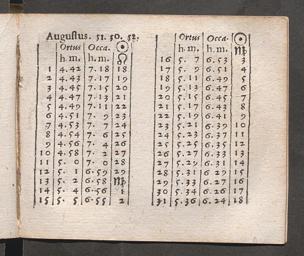 Augustus. 51. 50. 52.
Ortus Occa. ☉
h. m. h. m. ♌
1 4.42 7.18 18
2 4.43 7.17 19
3 4.45 7.15 20
4 4.47 7.13 21
5 4.49 7.11 22
6 4.51 7. 9 23
7 4.53 7. 7 24
8 4.54 7. 6 25
9 4.56 7. 4 26
10 4.58 7. 2 27
11 5. 0 7. 0 28
12 5. 1 6.59 29
13 5. 2 6.58 ♍
14 5. 4 6.56 1
15 5. 5 6.55 2
Ortus Occa. ☉
h. m. h. m. ♍
16 5. 7 6.53 3
17 5. 9 6.51 4
18 5.11 6.49 5
19 5.13 6.47 6
20 5.15 6.45 7
21 5.17 6.43 8
22 5.19 6.41 9
23 5.21 6.39 10
24 5.22 6.38 11
25 5.24 6.36 12
26 5.26 6.34 13
27 5.27 6.33 14
28 5.29 6.31 15
29 5.31 6.29 16
30 5.33 6.27 17
31 5.36 6.24 18